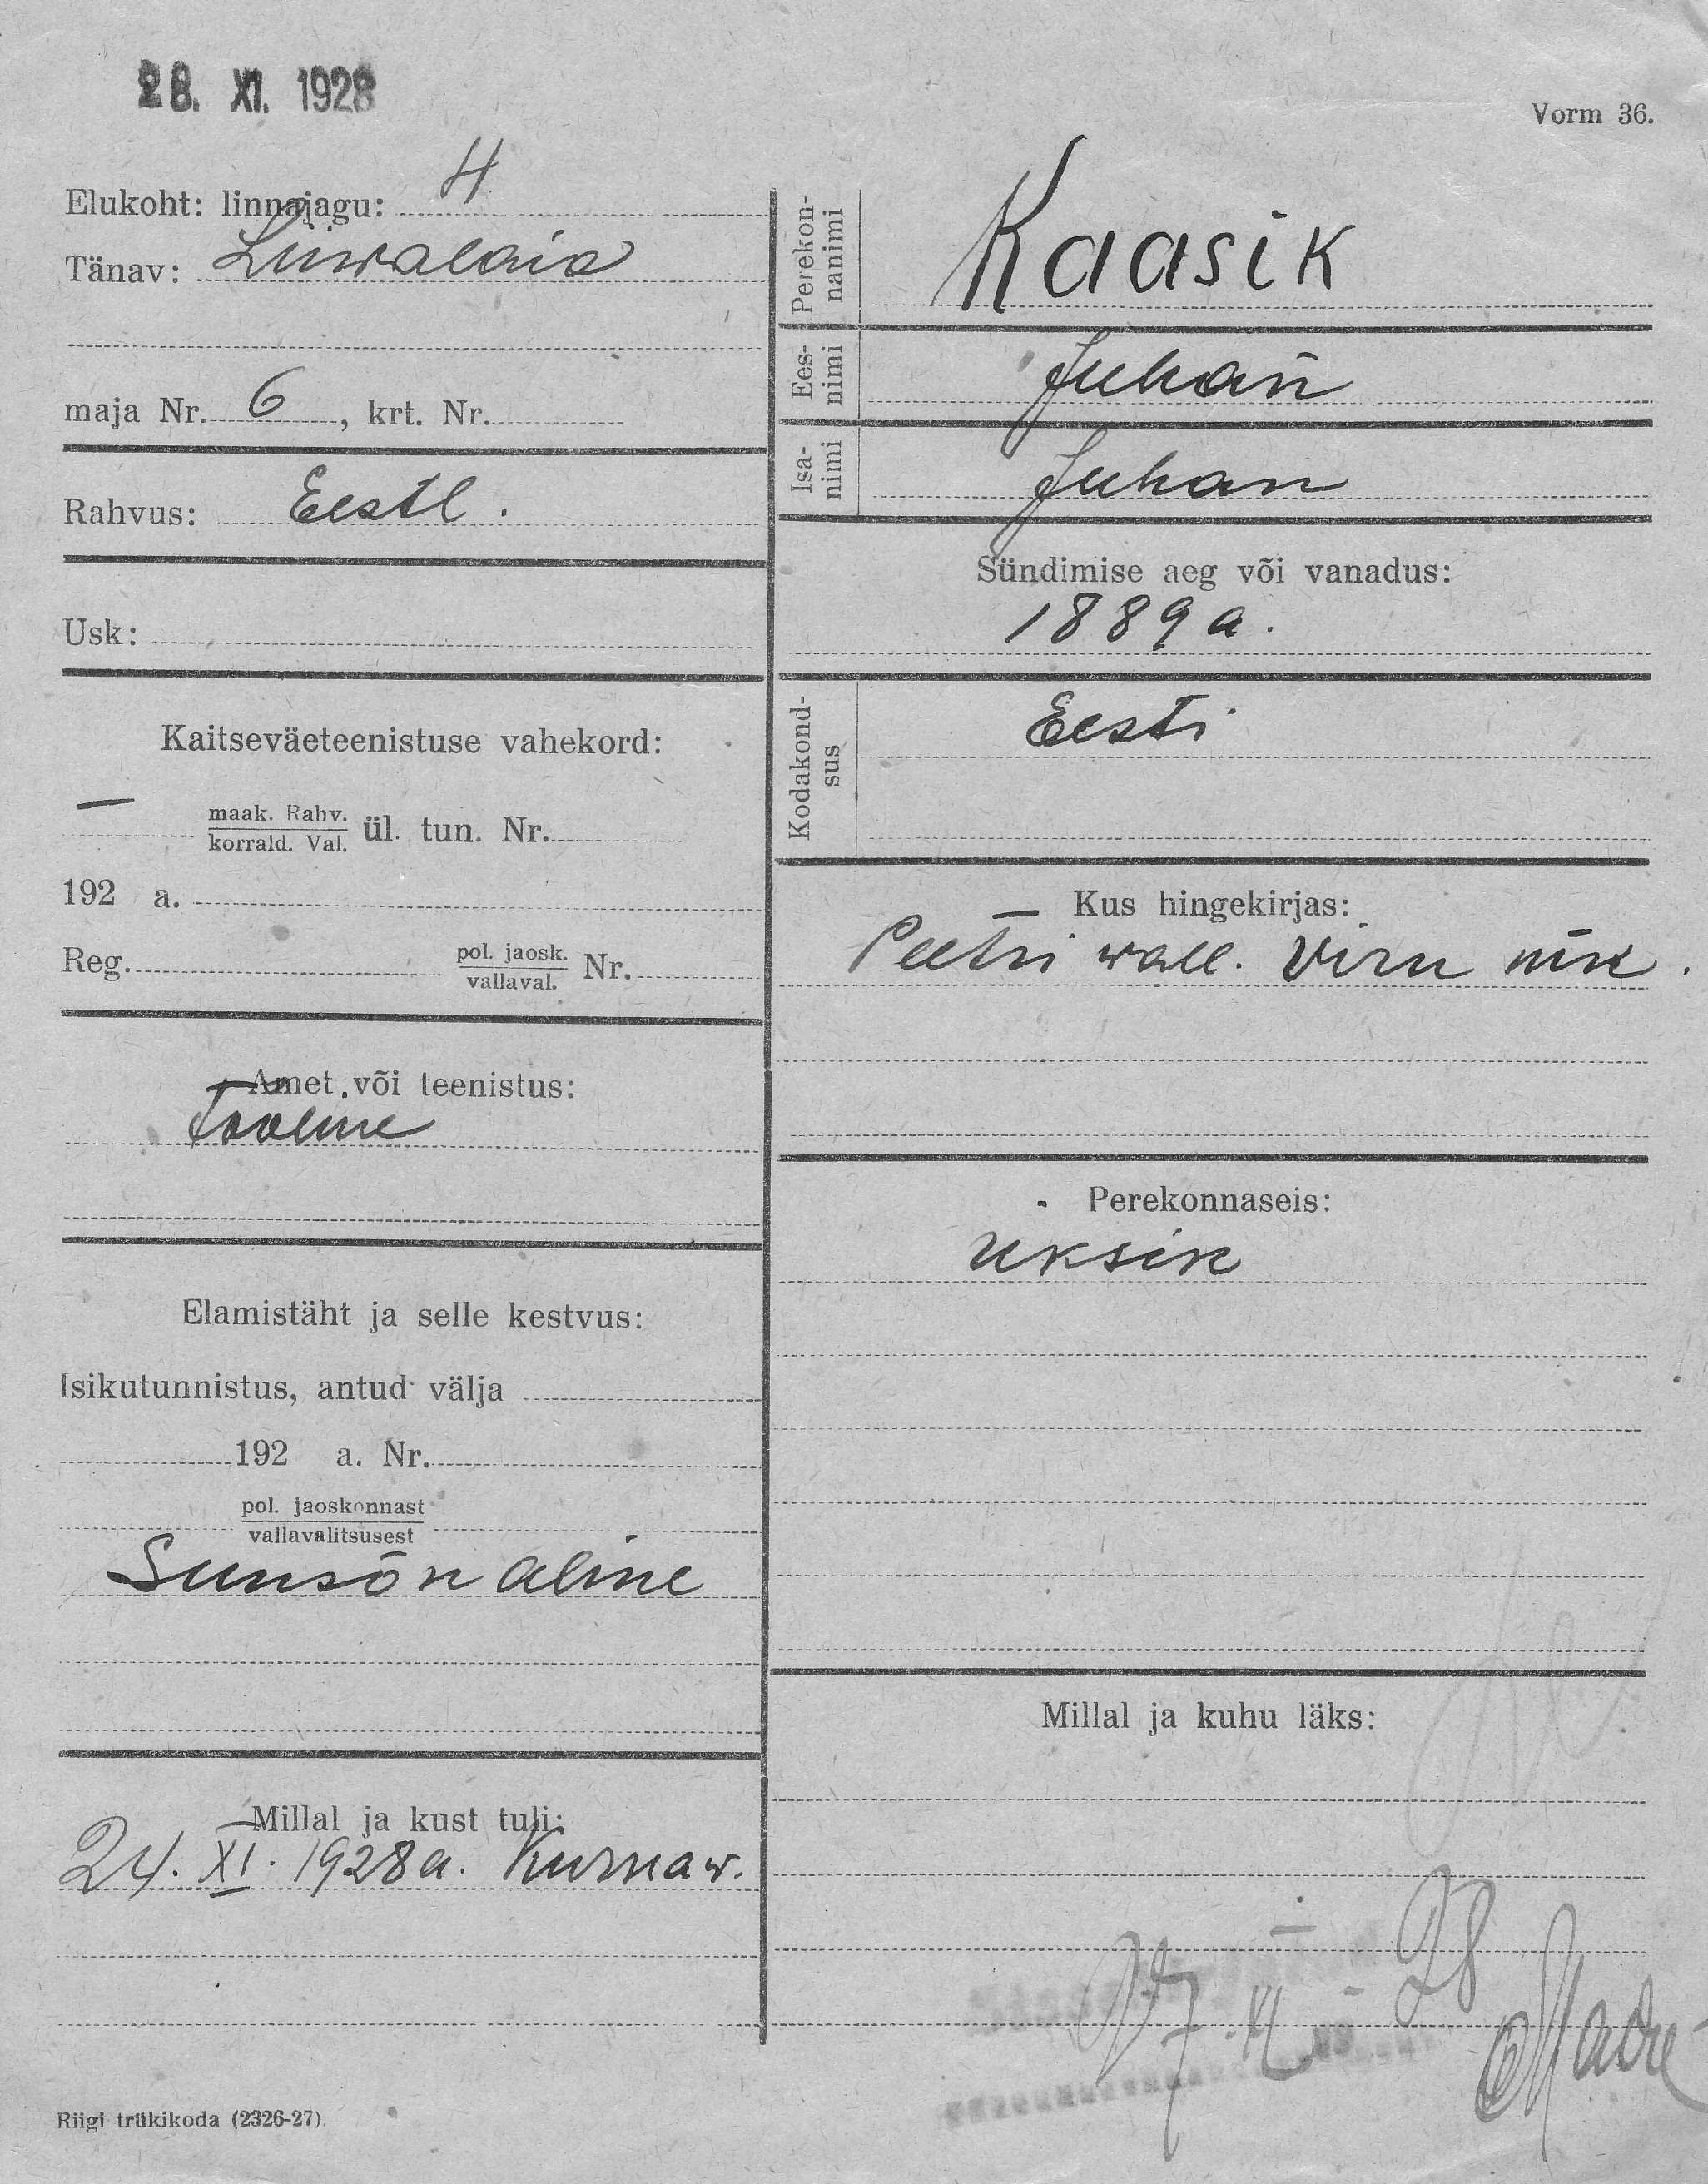 28. XI. 1928
Vorm 36.
Elukoht: linnajagu: 4
Tänav: Liiwalaia
maja Nr. 6, krt. Nr.
Rahvus: Eestl.
Usk:
Kaitseväeteenistuse vahekord:
— maak. Rahv.
korrald. Val. ül. tun. Nr.
192 a.
Reg. pol. jaosk.
vallaval. Nr.
Amet või teenistus:
Tööline
Elamistäht ja selle kestvus:
Isikutunnistus, antud välja
192 a. Nr.
pol. jaoskonnast
vallavalitsusest
Sunsõnaline
Millal ja kust tuli:
24. XI. 1928 a. Kurna w.
Riigi trükikoda (2326-27).
Perekon-
nanimi
Kaasik
Ees-
nimi
Juhan
Isa-
nimi
Juhan
Sündimise aeg või vanadus:
1889 a.
Kodakond-
sus
Eesti
Kus hingekirjas:
Peetri wall. Viru mk.
Perekonnaseis:
Üksik
Millal ja kuhu läks:
27. XI - 28